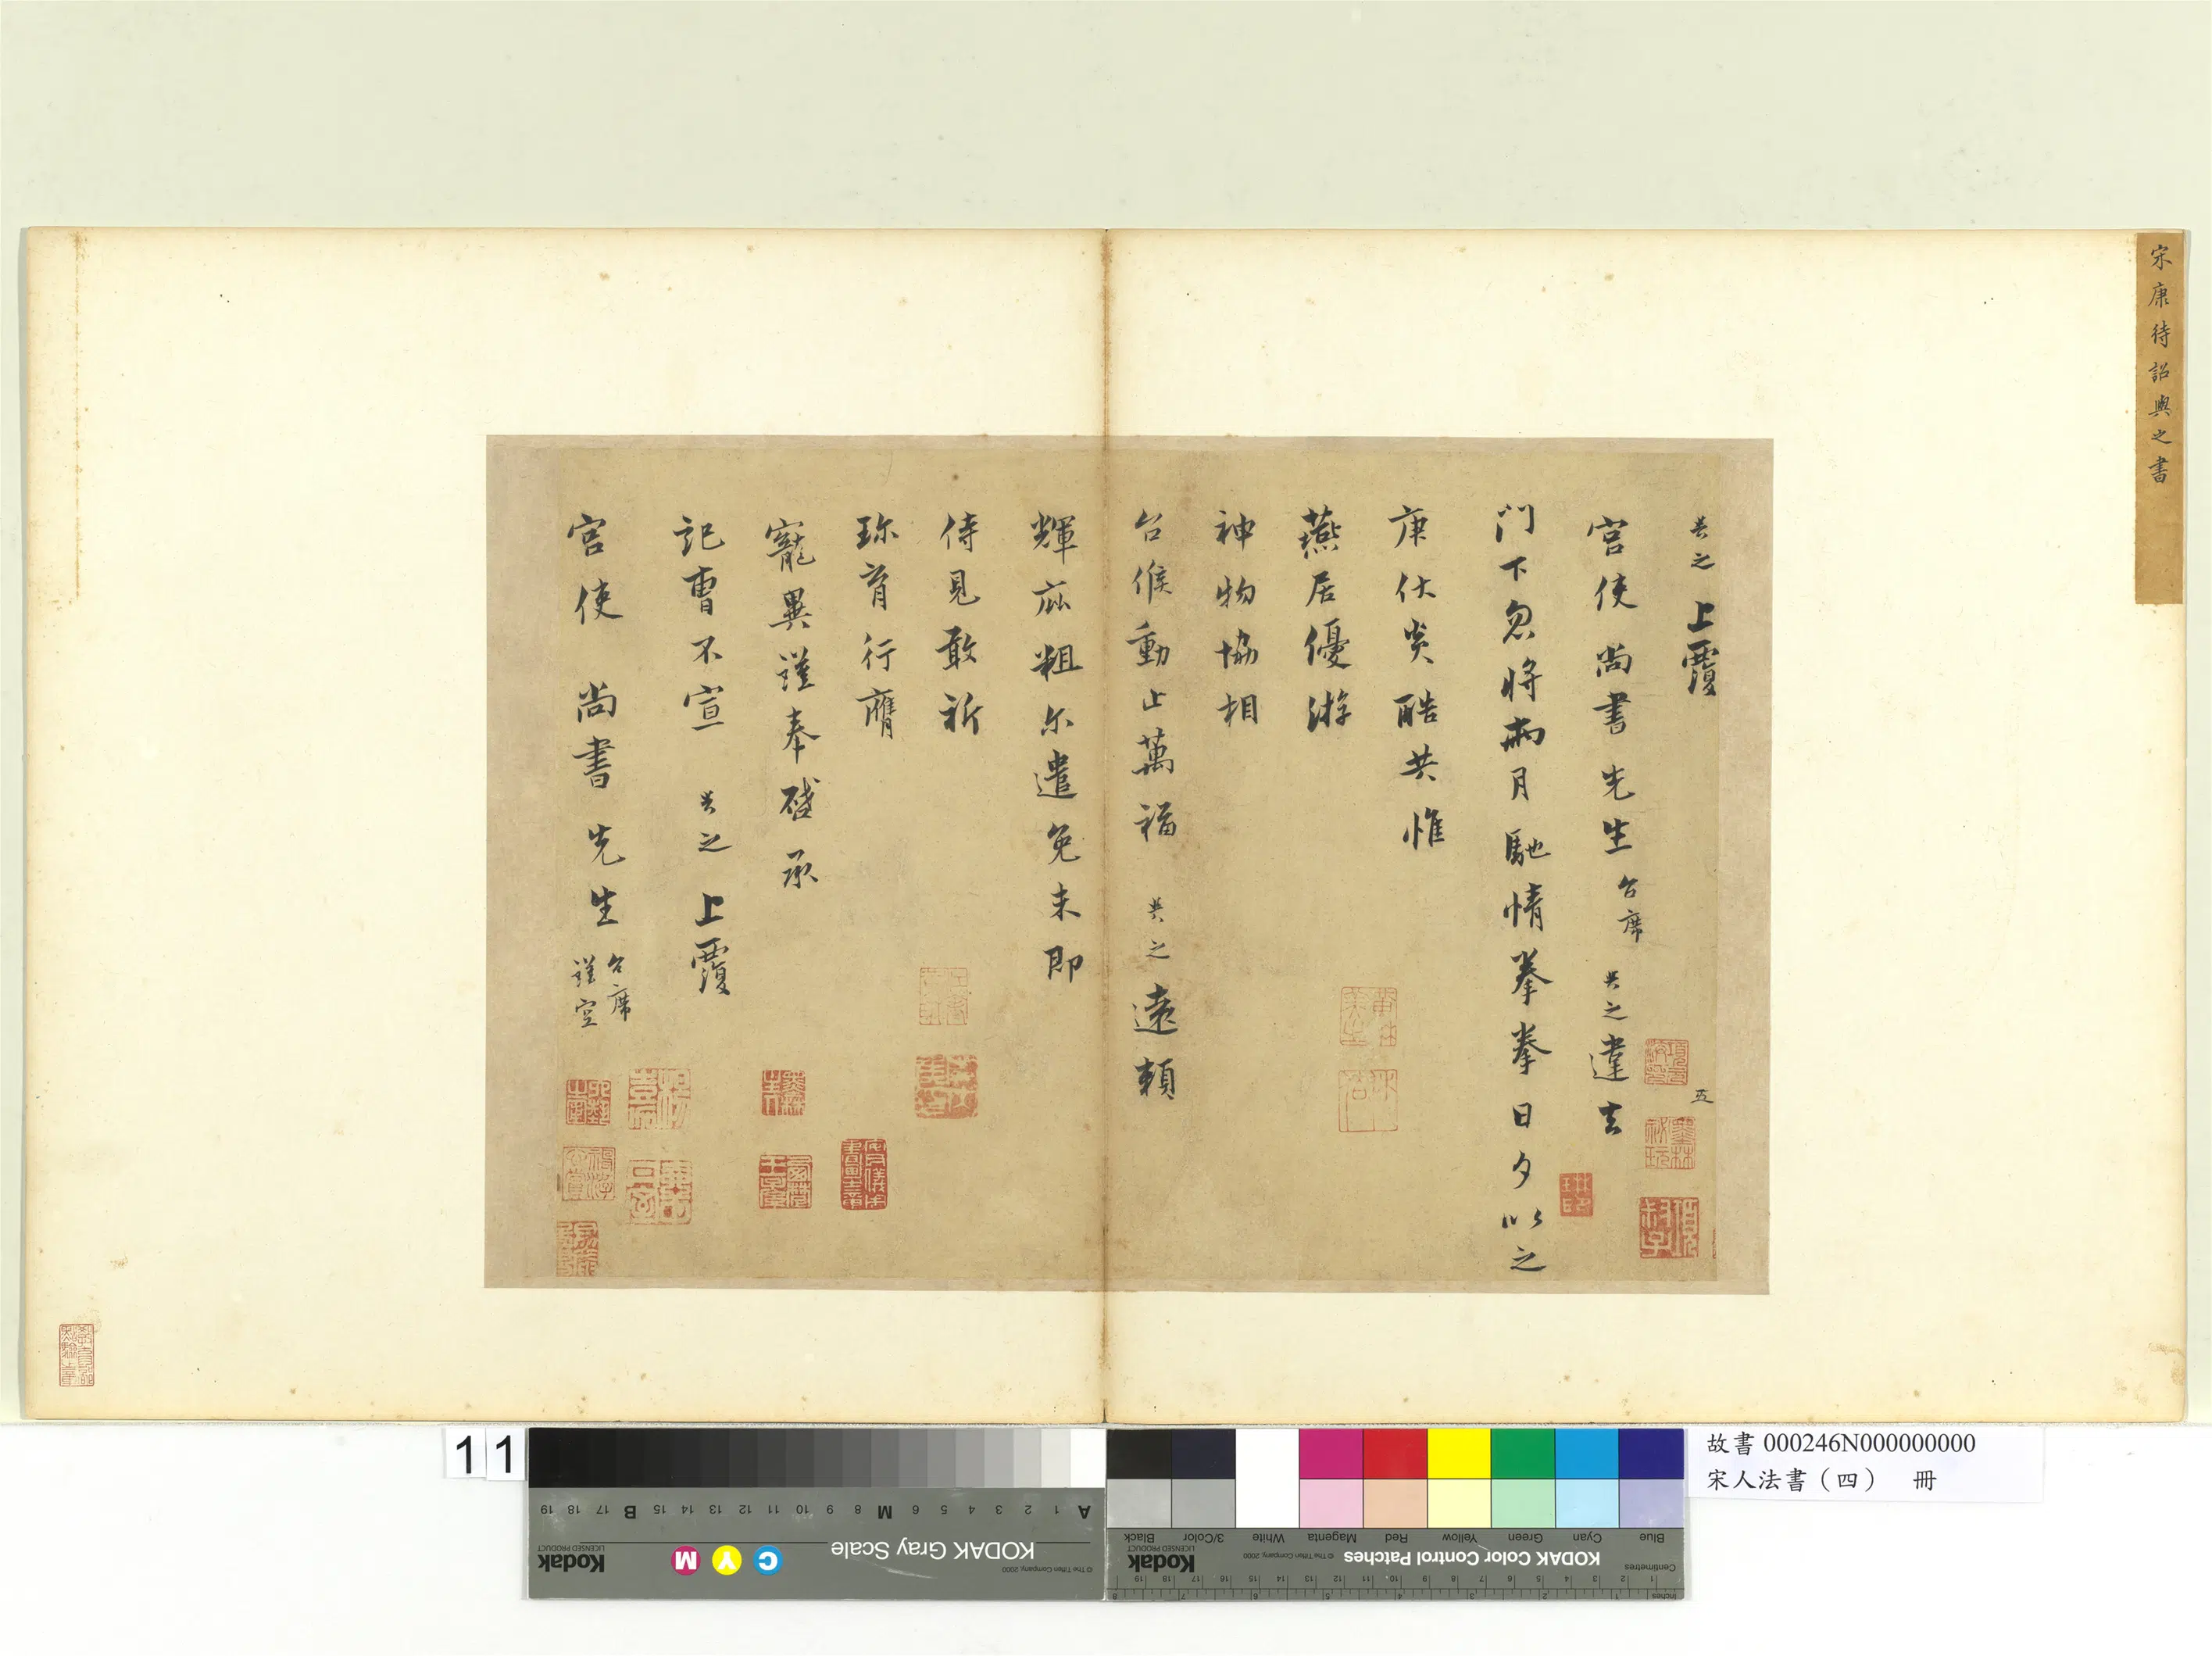 宋康待詔與之書
與之上覆
宮使尚書先生台席與之違去
門下忽將兩月馳情拳拳日夕以之
庚伏炎酷共惟
燕居優游
神物協相
台候動止萬福與之遠賴
輝庇粗尔遣免未即
侍見敢祈
珎育行膺
寵異謹奉啓承
記曹不宣與之上覆
宮使尚書先生台席
謹空
五
11
故書 000246N000000000
宋人法書（四） 冊
A 1 2 3 4 5 6 M 8 9 10 11 12 13 14 15 B 17 18 19
KODAK Gray Scale
© The Tiffen Company, 2000
C Y M
Kodak
LICENSED PRODUCT
Blue Cyan Green Yellow Red Magenta White 3/Color Black
KODAK Color Control Patches
© The Tiffen Company, 2000
Kodak
LICENSED PRODUCT
Centimetres
Inches